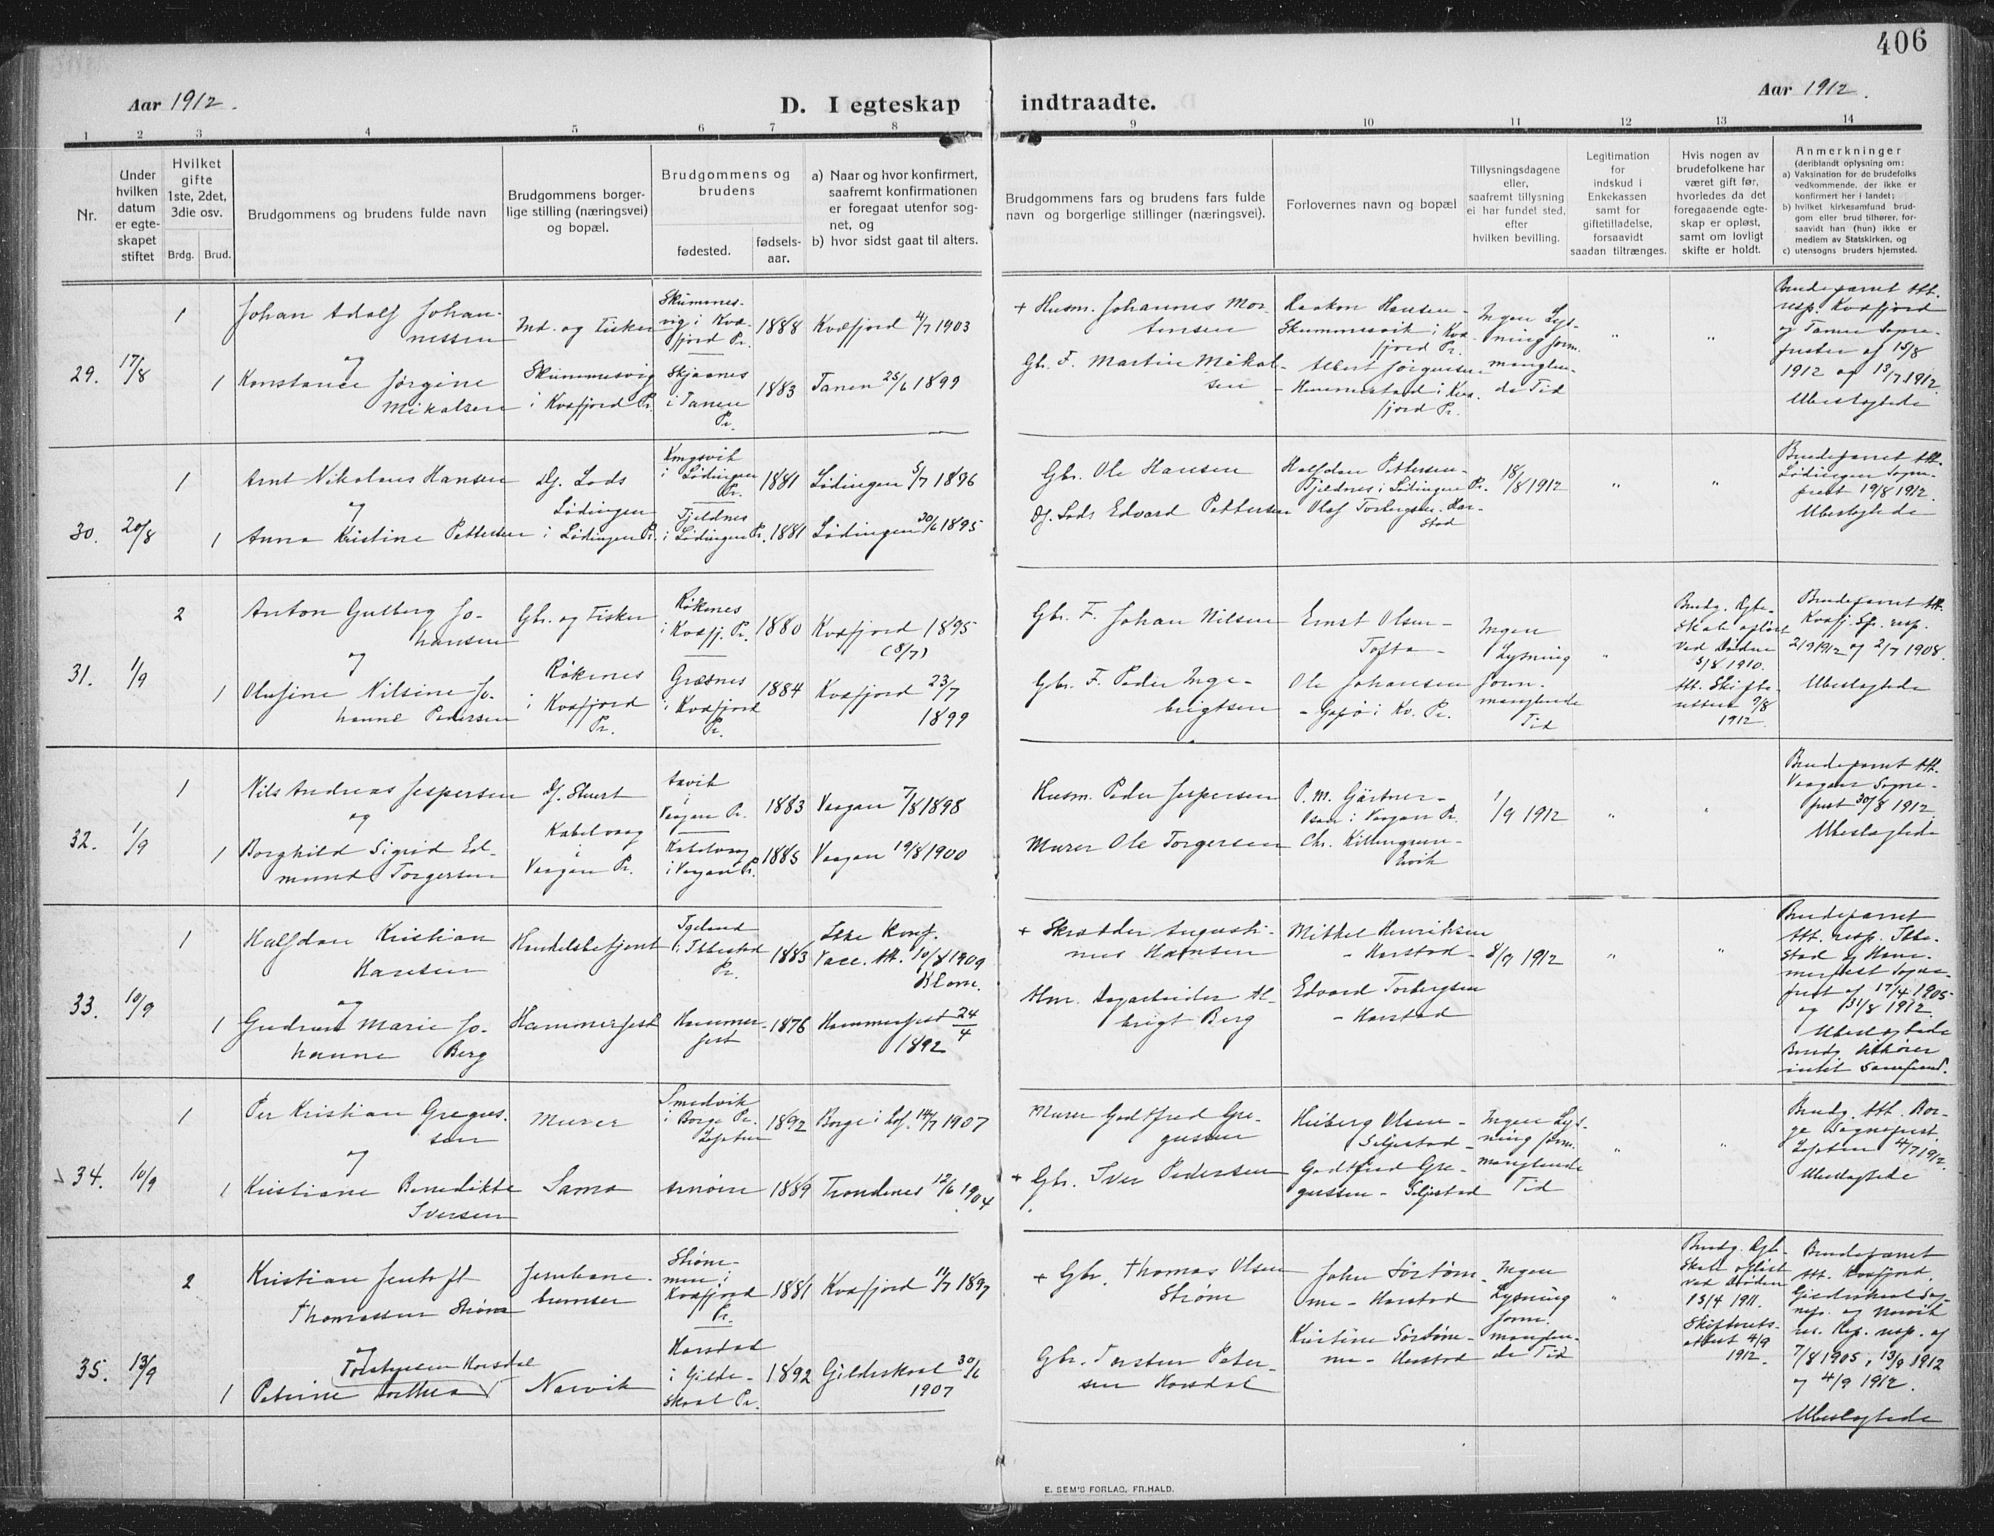 406
Aar 1912.
D. I egteskap indtraadte.
Aar 1912.
1 2 3 4 5 6 7 8 9 10 11 12 13 14
Nr.
Under hvilken datum er egteskapet stiftet
Hvilket gifte 1ste, 2det, 3die osv.
Brdg. Brud.
Brudgommens og brudens fulde navn
Brudgommens borgerlige stilling (næringsvei) og bopæl.
Brudgommens og brudens
fødested.
fødselsaar.
a) Naar og hvor konfirmert, saafremt konfirmationen er foregaat utenfor sognet, og
b) hvor sidst gaat til alters.
Brudgommens fars og brudens fars fulde navn og borgerlige stillinger (næringsvei).
Forlovernes navn og bopæl
Tillysningsdagene eller, saafremt tillysning ei har fundet sted, efter hvilken bevilling.
Legitimation for indskud i Enkekassen samt for giftetilladelse, forsaavidt saadan tiltrænges.
Hvis nogen av brudefolkene har været gift før, hvorledes da det foregaaende egteskap er opløst, samt om lovligt skifte er holdt.
Anmerkninger
(deriblandt oplysning om:
a) Vaksination for de brudefolks vedkommende, der ikke er konfirmert her i landet;
b) hvilket kirkesamfund brudgom eller brud tilhører, forsaavidt han (hun) ikke er medlem av Statskirken, og
c) utensogns bruders hjemsted.
29. 17/8
1
Johan Adolf Johannessen
og
1 Konstance Jørgine Mikalsen
Ind. og Fisker
Skummesvig i Kvæfjord Pr.
Skummesvig i Kvæfjord Pr.
1888 Kvæfjord 4/7 1903
Skjaanes i Tanen Pr.
1883 Tanen 25/6 1899
+ Husm. Johannes Mortensen
Gbr. F. Martin Mikalsen
Haakon Hansen - Skummesvik i Kvæfjord Pr.
Albert Jørgensen Hemmestad i Kvæfjord Pr.
Ingen Lysning form. manglende Tid
" "
Brudeparret Att. resp. Kvæfjord og Tanen Sogneprester af 15/8 1912 og 13/7 1912
Ubeslægtede
30. 20/8
1
Arnt Nikolaus Hansen
og
1 Anna Kristine Pettersen
Dj. Lods
Lødingen i Lødingen Pr.
Kongsvik i Lødingen Pr.
1881 Lødingen 5/7 1896
Fjeldnes i Lødingen Pr. 1881 Lødingen 30/6 1895
Gbr. Ole Hansen
Dj. Lods Edvard Pettersen
Halfdan Pettersen - Fjeldnes i Lødingen Pr.
Olaf Torbergsen. Harstad
18/8 1912
" "
Brudeparret Att. Lødingen Sogneprest 19/8 1912.
Ubeslægtede
31. 1/9
2
Anton Gulberg Johansen
og
1 Olufine Nilsine Johanne Pedersen
Gbr. og Fisker
Røkenes i Kvæfjord Pr.
Røkenes i Kvæfj. Pr. 1880 Kvæfjord 1895 (5/7)
Græsnes i Kvæfjord Pr.
1884 Kvæfjord 23/7 1899
Gbr. F. Johan Nilsen
Gbr. F. Peder Ingebrigtsen
Ernst Olsen - Tofta -
Ole Johansen - Gapø i Kv. Pr.
Ingen Lysning form. manglende Tid
"
Brudg. Egteskab opløst ved Døden 3/8 1910. Att. Skifteretten 9/8 1912
Brudeparret Att. Kvæfj. Spr. resp. 2/9 1912 og 2/7 1908.
Ubeslægtede
32. 1/9
1
Nils Andreas Jespersen
og
1 Borghild Sigrid Edmund Torgersen
Dj. Stuert
Kabelvaag i Vaagan Pr.
Aavik i Vaagan Pr. 1883 Vaagan 7/8 1898
Kabelvaag i Vaagan Pr. 1885 Vaagan 19/8 1900
Husm. Peder Jespersen
Murer Ole Torgersen
P. M. Gärtner - i Vaagan Pr.
Chr. Killengreen
1/9 1912
" "
Brudeparret Att. Vaagan Sogneprest 30/8 1912
Ubeslægtede
33. 10/9
1
Halfdan Kristian Hansen
og
1 Gudrun Marie Johanne Berg
Handelsbetjent
Hammerfest
Igeland i Ibbestad Pr.
1883 Ikke konf. Vacc. Att. 10/8 1909
Hammerfest 1876 Hammerfest 24/4 1892
+ Skrædder Augustinus Hansen
Hm. Dagarbeider Albrigt Berg
Mikkel Henriksen - Harstad -
Edvard Torbergsen - Harstad
8/9 1912
" "
Brudeparret Att. resp. Ibbestad og Hammerfest Sogneprest af 17/4 1905 og 31/8 1912
Ubeslægtede
Brudg. tilhører intet Samfund.
34. 10/9
1
Per Kristian Gregussen
og
1 Kristiane Benedikte Iversen
Murer
Sama
Smedvik i Borge Pr. Lofoten 1892 Borge i Lof. 14/7 1907
1889 Trondenes 12/6 1904
Murer Godtfred Gregussen
+ Gbr. Iver Pedersen
Heiberg Olsen - Seljestad -
Godtfred Gregussen - Seljestad
Ingen Lysning form. manglende Tid
" "
Brudg. Att. Borge Sogneprest, Lofoten 4/7 1912.
Ubeslægtede
35. 13/9
2
Kristian Jentoft Thomassen Strøm
og
Torstensen Horsdal
1 Petrine Dorthea
Jernbanebremser
Narvik
Strømmen i Kvæfjord Pr.
1881 Kvæfjord 11/7 1897
Horsdal i Gildeskaal Pr.
1892 Gildeskaal 30/6 1907
+ Gbr. Thomas Olsen Strøm
Gbr. Torsten Petersen Horsdal
John Sørtømme - Harstad
Kirstine Sørtømme - Harstad
Ingen Lysning form. manglende Tid
"
Brudg. Egteskab opløst ved Døden 13/4 1911. Skifteretsattest 4/9 1912.
Brudeparret Att. Kvæfjord, Gildeskaal Sognepr. og Narvik res. Kap. resp. af 7/8 1905, 13/9 1912 og 4/9 1912.
Ubeslægtede
E. SEM'S FORLAG, FR.HALD.